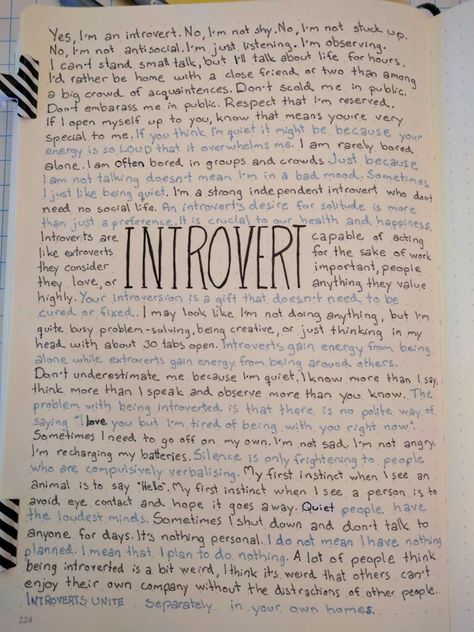 Yes, I'm an introvert. No, I'm not shy. No, I'm not stuck up.
No, I'm not antisocial. I'm just listening. I'm observing.
I can't stand small talk, but I'll talk about life for hours.
I'd rather be home with a close friend or two than among
a big crowd of acquaintences. Don't scold me in public.
Don't embarass me in public. Respect that I'm reserved.
If I open myself up to you, know that means you're very
special to me. If you think I'm quiet it might be because your
energy is so LOUD that it overwhelms me. I am rarely bored
alone. I am often bored in groups and crowds Just because
I am not talking doesn't mean I'm in a bad mood. Sometimes
I just like being quiet. I'm a strong independent introvert who don't
need no social life. An introvert's desire for solitude is more
than just a preference. It is crucial to our health and happiness.
Introverts are capable of acting
like extroverts for the sake of work
they consider important, people
they love, or anything they value
INTROVERT
highly. Your introversion is a gift that doesn't need to be
cured or fixed. I may look like I'm not doing anything, but I'm
quite busy problem-solving, being creative, or just thinking in my
head with about 30 tabs open. Introverts gain energy from being
alone while extroverts gain energy from being around others.
Don't underestimate me because I'm quiet. I know more than I say,
think more than I speak and observe more than you know. The
problem with being introverted is that there is no polite way of
saying "I love you but I'm tired of being with you right now".
Sometimes I need to go off on my own. I'm not sad. I'm not angry.
I'm recharging my batteries. Silence is only frightening to people
who are compulsively verbalising. My first instinct when I see an
animal is to say "Hello". My first instinct when I see a person is to
avoid eye contact and hope it goes away. Quiet people have
the loudest minds. Sometimes I shut down and don't talk to
anyone for days. It's nothing personal. I do not mean I have nothing
planned. I mean that I plan to do nothing. A lot of people think
being introverted is a bit weird, I think it's weird that others can't
enjoy their own company without the distractions of other people.
INTROVERTS UNITE separately in your own homes.
224